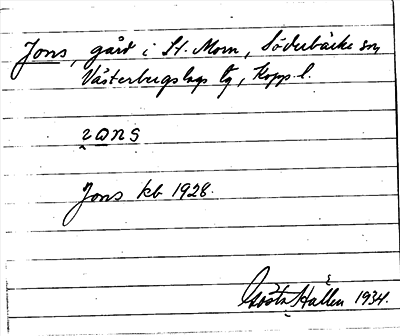 Jons, gård i St. Mom, Söderbärke sn,
Västerbergslags tg, Kopp. l.
Jons kb 1928.
Gösta Hallen 1934.